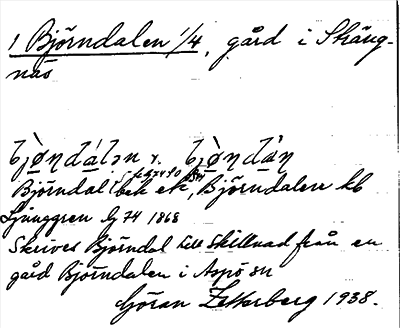 1 Björndalen 1/4, gård i Sträng-
näs
bjø̀ṇdálən r. bjø̀ṇdáṇ
Björndal bek ek, Björndalen kb
Ljunggren G 74 1868
Skrives Björndal till skillnad från en
gård Björndalen i Aspö sn
Göran Zetterberg 1938.